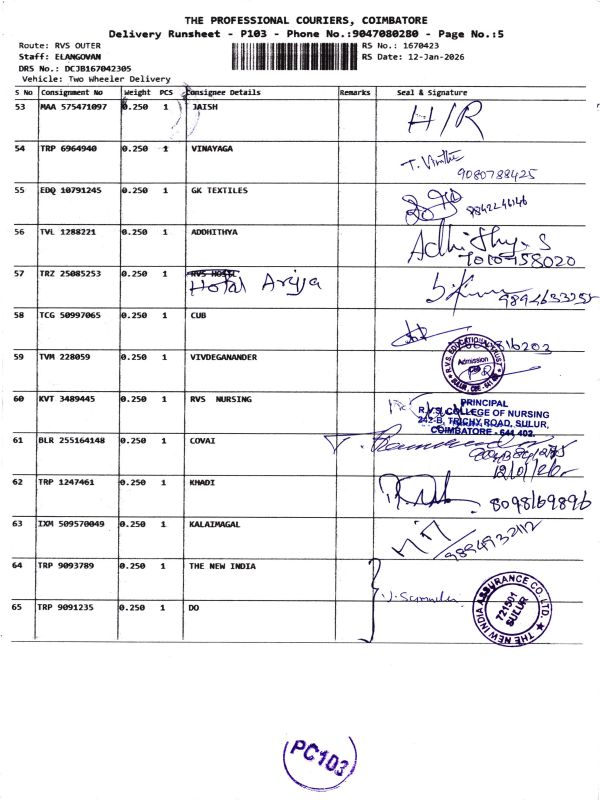 THE PROFESSIONAL COURIERS, COIMBATORE
Delivery Runsheet - P103 - Phone No.:9047080280 - Page No.:5
Route: RVS OUTER RS No.: 1670423
Staff: ELANGOVAN RS Date: 12-Jan-2026
DRS No.: DCJB167042305
Vehicle: Two Wheeler Delivery
S No Consignment No Weight PCS Consignee Details Remarks Seal & Signature
53 MAA 575471097 0.250 1 JAISH H/R
54 TRP 6964940 0.250 1 VINAYAGA
9080788425
55 EDQ 10791245 0.250 1 GK TEXTILES
9842246146
56 TVL 1288221 0.250 1 ADDHITHYA Adhithya. S
57 TRZ 25085253 0.250 1 RVS HOSTL
Hotal Arijja
58 TCG 50997065 0.250 1 CUB
59 TVM 228059 0.250 1 VIVDEGANANDER
R.V.S. EDUCATIONAL TRUST
Admission
60 KVT 3489445 0.250 1 RVS NURSING
PRINCIPAL
R.V.S. COLLEGE OF NURSING
242-B, TRICHY ROAD, SULUR,
COIMBATORE - 641 402.
61 BLR 255164148 0.250 1 COVAI
12/01/26
62 TRP 1247461 0.250 1 KHADI
8098169896
63 IXM 509570049 0.250 1 KALAIMAGAL
9894932112
64 TRP 9093789 0.250 1 THE NEW INDIA
65 TRP 9091235 0.250 1 DO
THE NEW INDIA ASSURANCE CO. LTD.
721501
SULUR
PC103